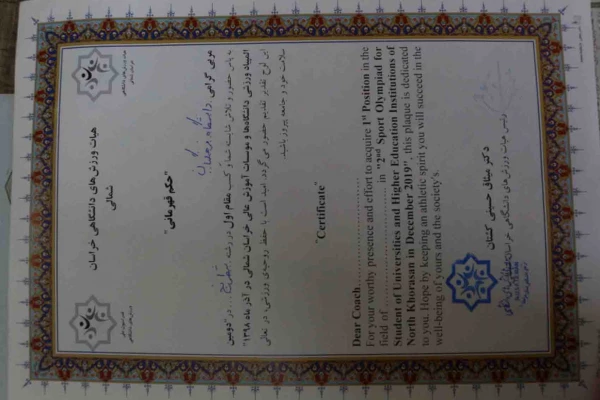 هیات ورزش‌های دانشگاهی خراسان
شمالی
"حکم قهرمانی"
مربی گرامی
به پاس حضور و تلاش شایسته شما در کسب مقام اول در رشته در "دومین
المپیاد ورزشی دانشگاه‌ها و موسسات آموزش عالی خراسان شمالی در آذر ماه ۱۳۹۸"
این لوح تقدیر تقدیم حضور می گردد. امید است با حفظ روحیه‌ی ورزشی، در تعالی
سلامت خود و جامعه پیروز باشید.
"Certificate"
Dear Coach..............................
For your worthy presence and effort to acquire 1st Position in the
field of .............................. in "2nd Sport Olympiad for
Student of Universities and Higher Education Institutions of
North Khorasan in December 2019", this plaque is dedicated
to you. Hope by keeping an athletic spirit you will succeed in the
well-being of yours and the society's.
دکتر میثاق حسینی کشتان
رئیس هیات ورزش‌های دانشگاهی خراسان